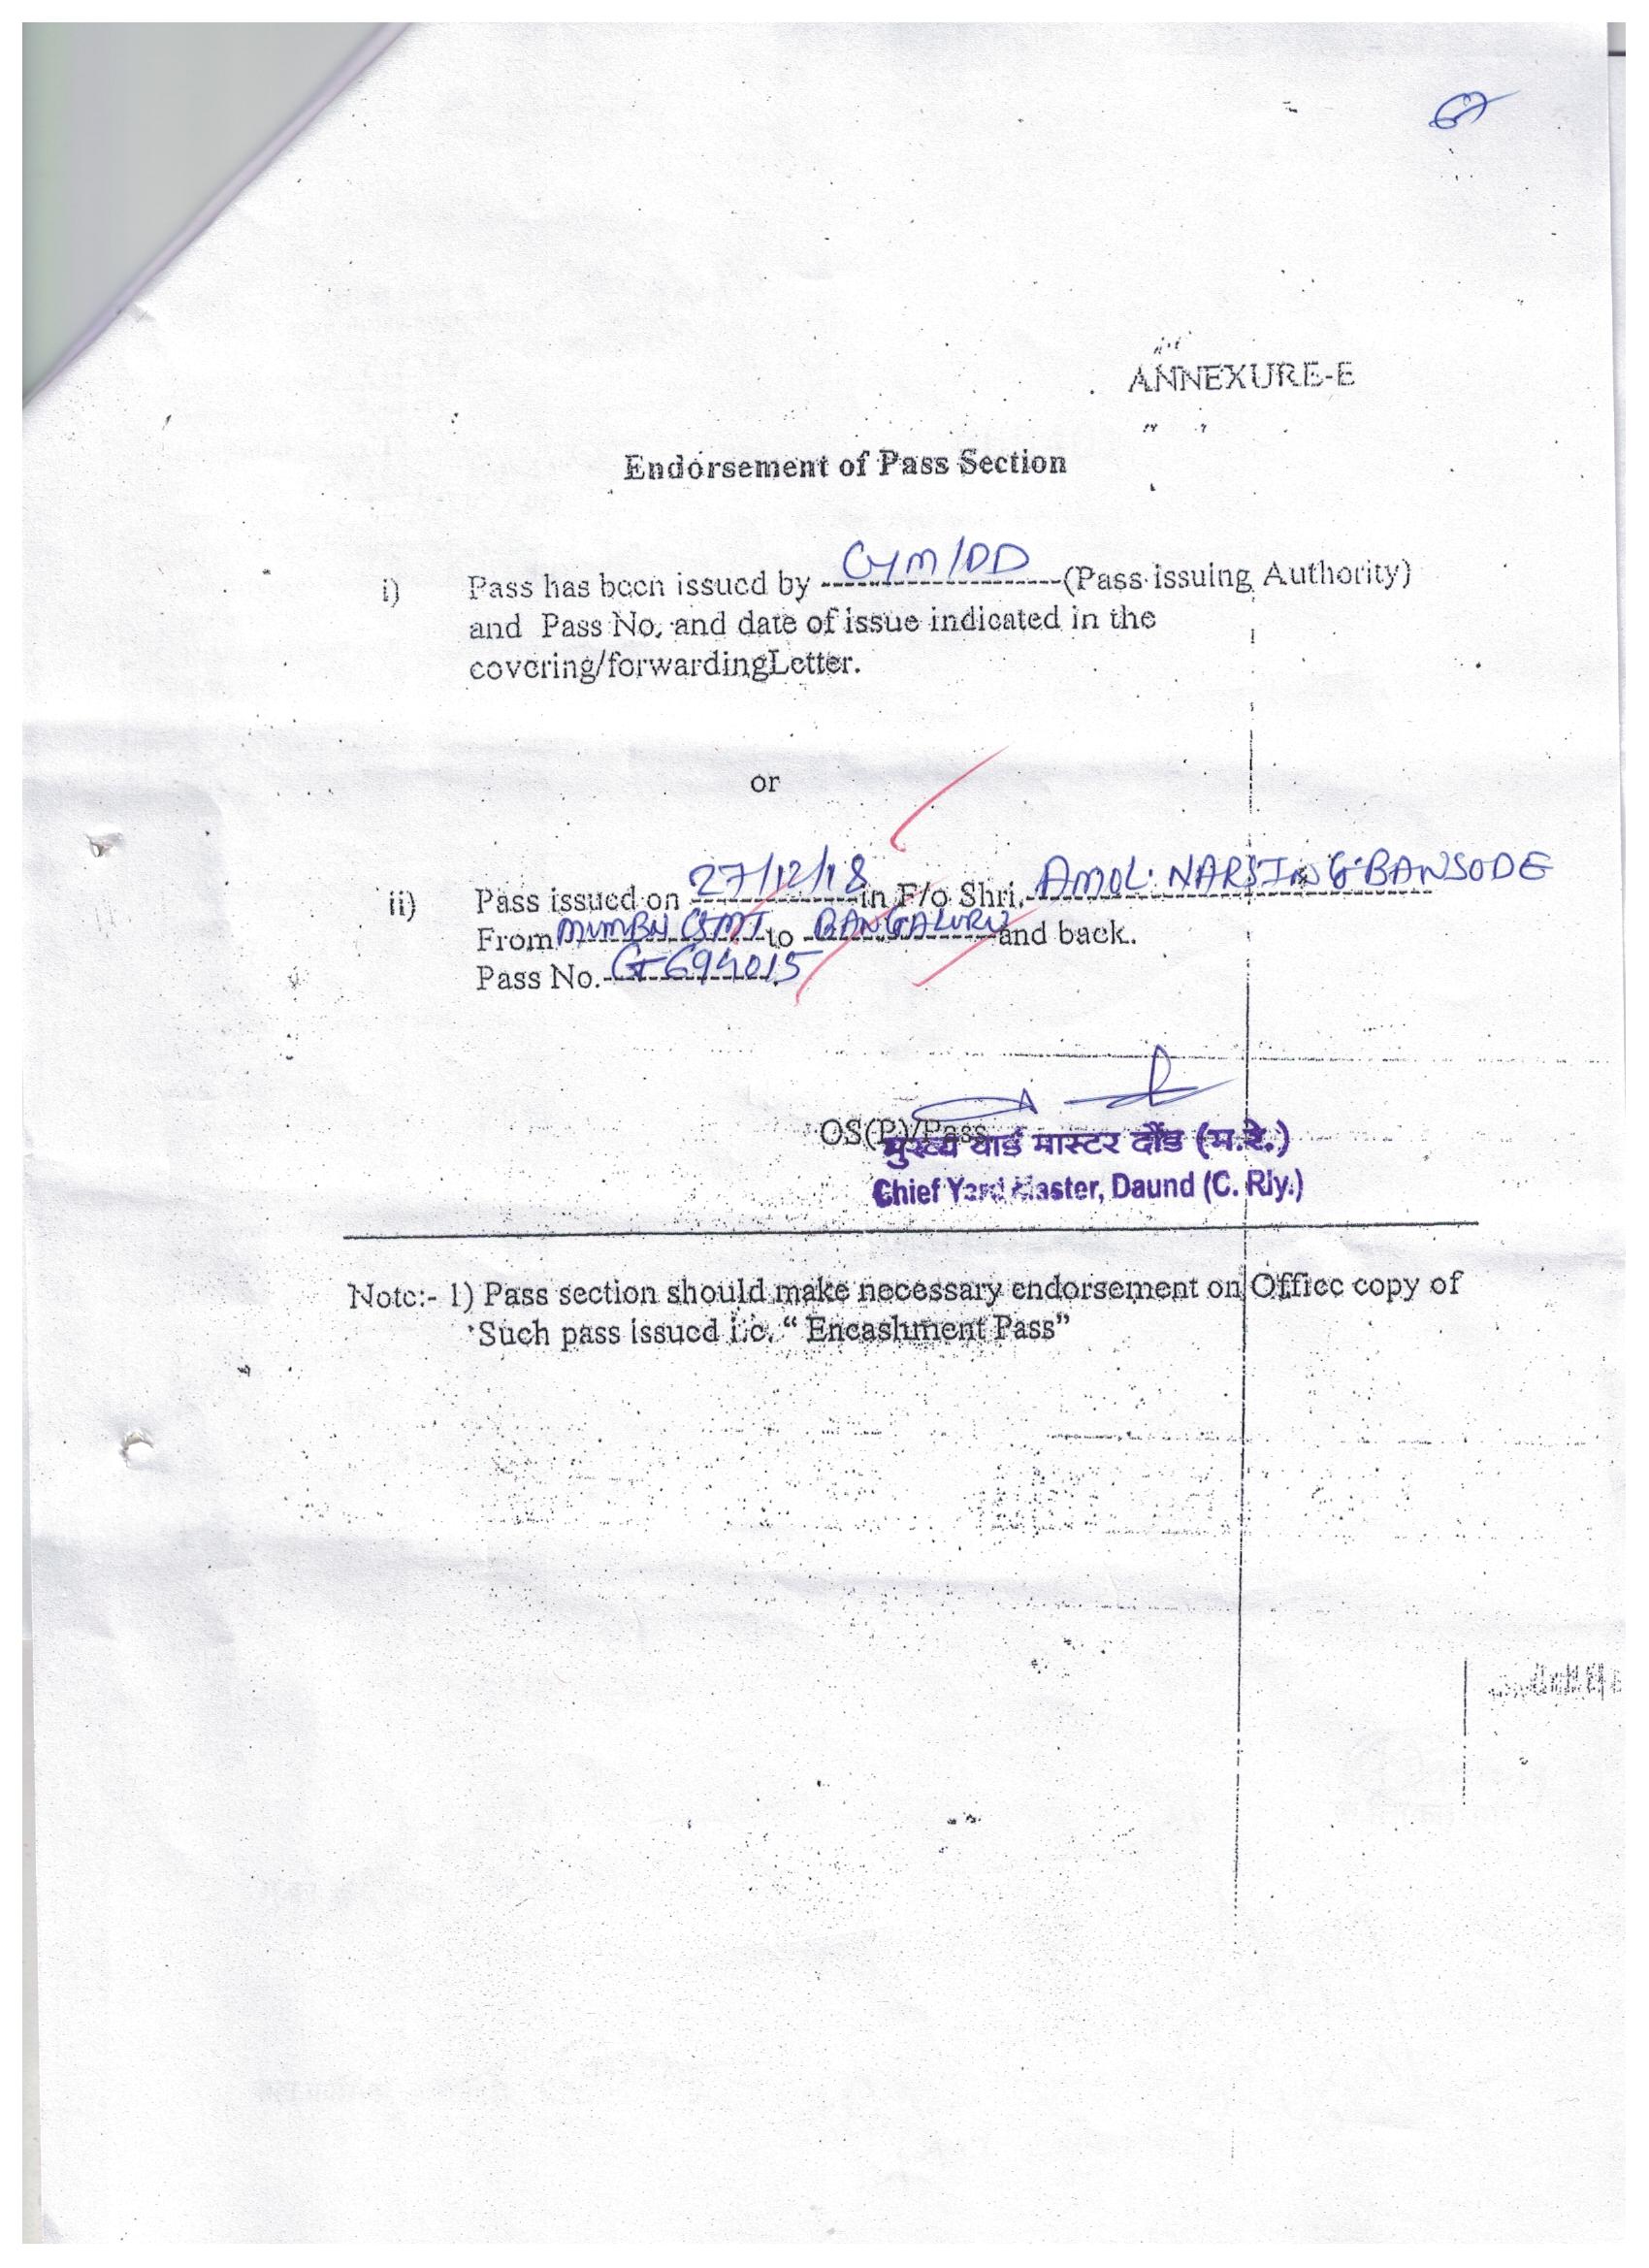 ANNEXURE-E
Endorsement of Pass Section
i) Pass has been issued by CYM/DD (Pass issuing Authority)
and Pass No. and date of issue indicated in the
covering/forwardingLetter.
or
ii) Pass issued on 27/12/18 in F/o Shri. AMOL. NARSING BANSODE
From MUMBAI CSMT to BANGALURU and back.
Pass No. G 694015
OS(P)/Pass
मुख्य यार्ड मास्टर दौंड (म.रे.)
Chief Yard Master, Daund (C. Rly.)
Note:- 1) Pass section should make necessary endorsement on Office copy of
Such pass issued i.e. “ Encashment Pass”